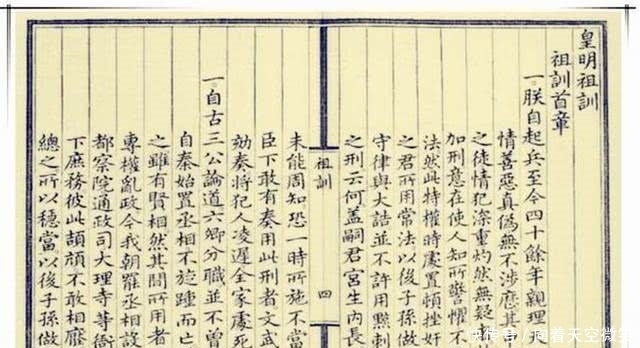 皇明祖訓
祖訓首章
一朕自起兵至今四十餘年親理
情善惡真偽無不涉歷其
之徒情犯深重灼然無疑
加刑意在使人知所警懼不
法然此特權時處置頓挫奸
之君所用常法以後子孫做
守律與大誥並不許用黥刺
之刑云何蓋嗣君宮生內長
祖訓
四
未能周知恐一時所施不當
臣下敢有奏用此刑者文武
劾奏將犯人凌遲全家處死
一自古三公論道六卿分職並不曾
自秦始置丞相不旋踵而亡
之雖有賢相然其間所用者
專權亂政今我朝罷丞相設
都察院通政司大理寺等衙
下庶務彼此頡頏不敢相壓
總之所以穩當以後子孫做
快传号/着天空微笑